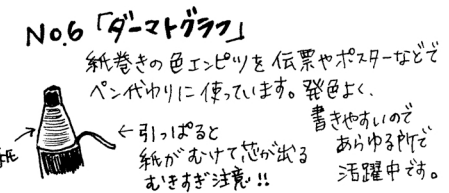 No.6「ダーマトグラフ」
紙巻きの色エンピツを伝票やポスターなどで
ペン代わりに使っています。発色よく、
書きやすいので
あらゆる所で
活躍中です。
紙→
←引っぱると
紙がむけて芯が出る
むきすぎ注意!!